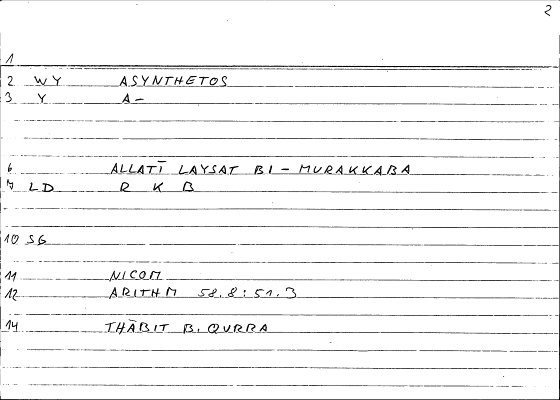 2
1
2 WY ASYNTHETOS
3 Y A-
6 ALLATĪ LAYSAT BI-MURAKKABA
7 LD R K B
10 SG
11 NICOM
12 ARITHM 58.8:51.3
14 THĀBIT B. QURRA